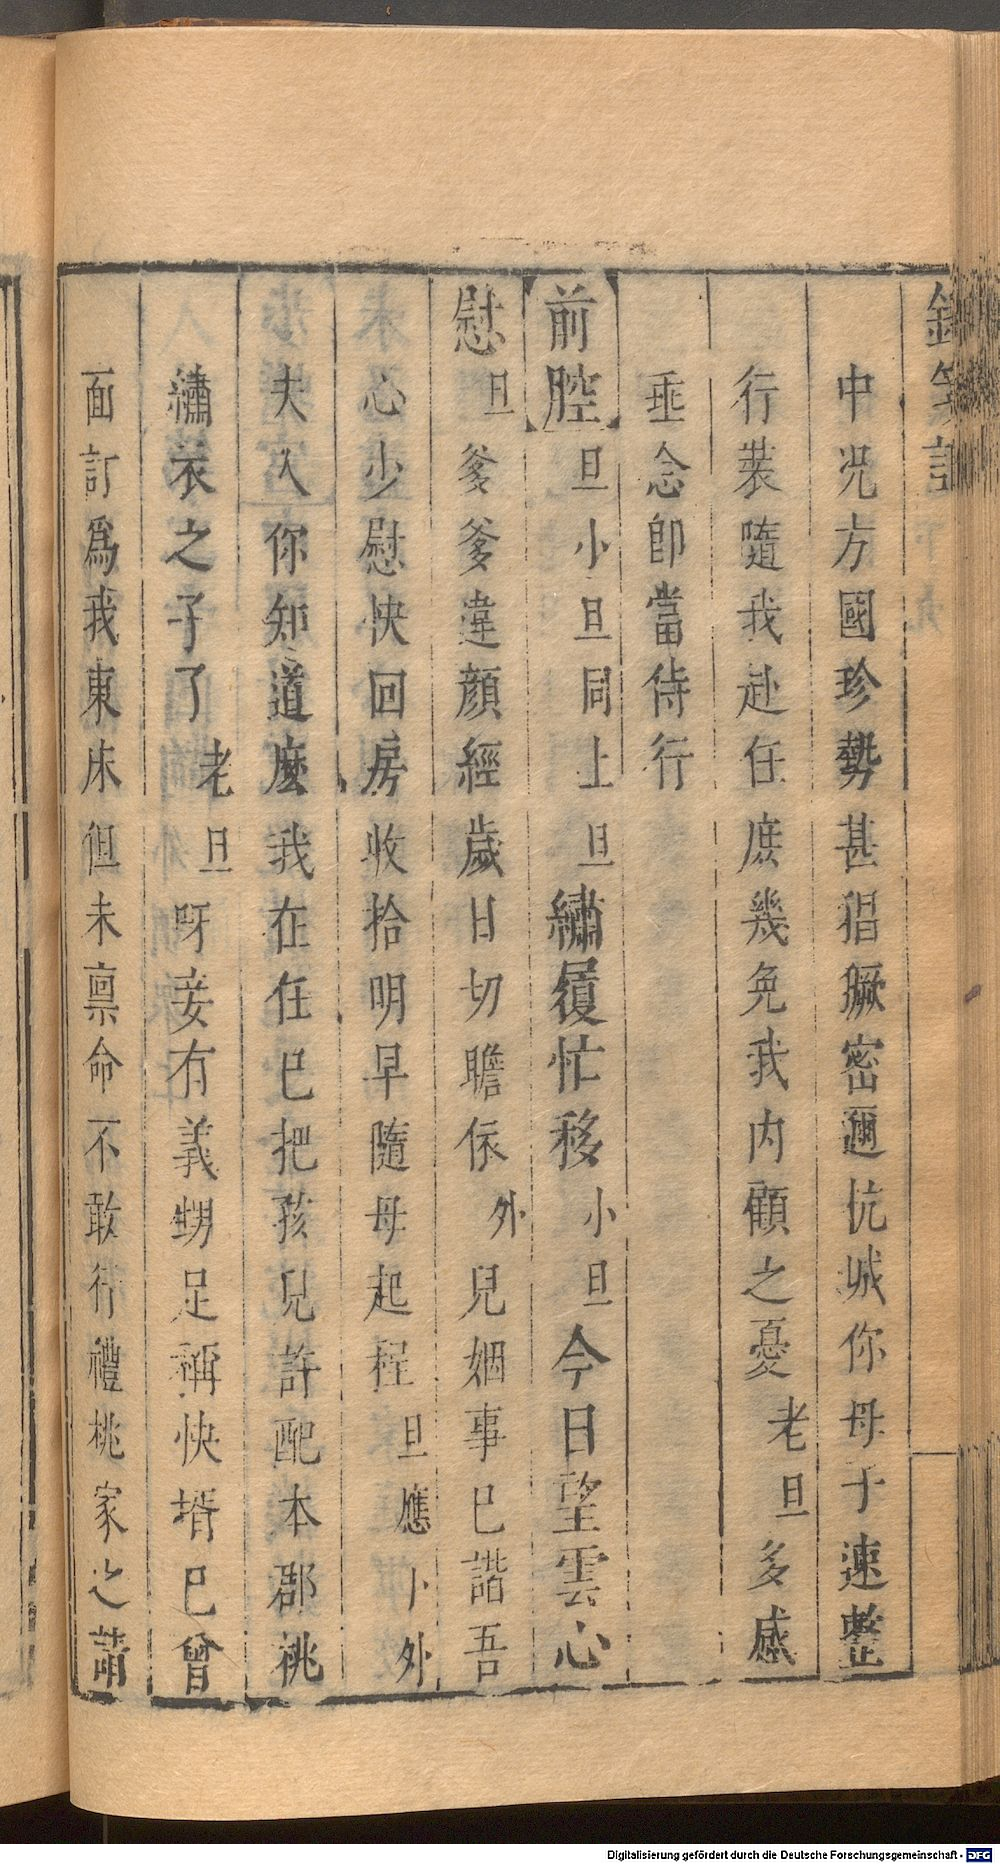 中况方國珍勢甚猖獗密邇杭城你母子速整
行裝隨我赴任庶幾免我内顧之憂老旦多感
垂念即當侍行
前腔旦小旦同上旦繡履忙移小旦今日望雲心
慰旦爹爹違顏經歲日切瞻依外兒姻事已諧吾
心少慰快回房收拾明早隨母起程旦應卜外
夫人你知道麽我在任已把孩兒許配本郡祧
繡衣之子了老旦呀妾有義甥足稱快壻已曾
面訂爲我東床但未禀命不敢行禮桃家之請
Digitalisierung gefördert durch die Deutsche Forschungsgemeinschaft - DFG